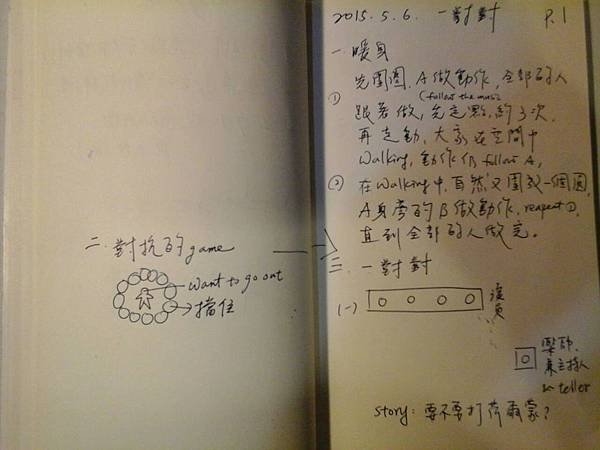 2015.5.6. 一對對 P.1
一. 暖身
先圍圈, A做動作, 全部的人
(follow the music)
① 跟著做, 先定點, 約3次,
再走動, 大家在空間中
Walking, 動作仍follow A,
② 在walking中, 自然又圍成一個圓,
A身旁的B做動作, reapeat ①,
直到全部的人做完。
二. 對抗的game
want to go out
擋住
三. 一對對
(一) 演員
樂師,
兼主持人
teller
story: 要不要打荷爾蒙?